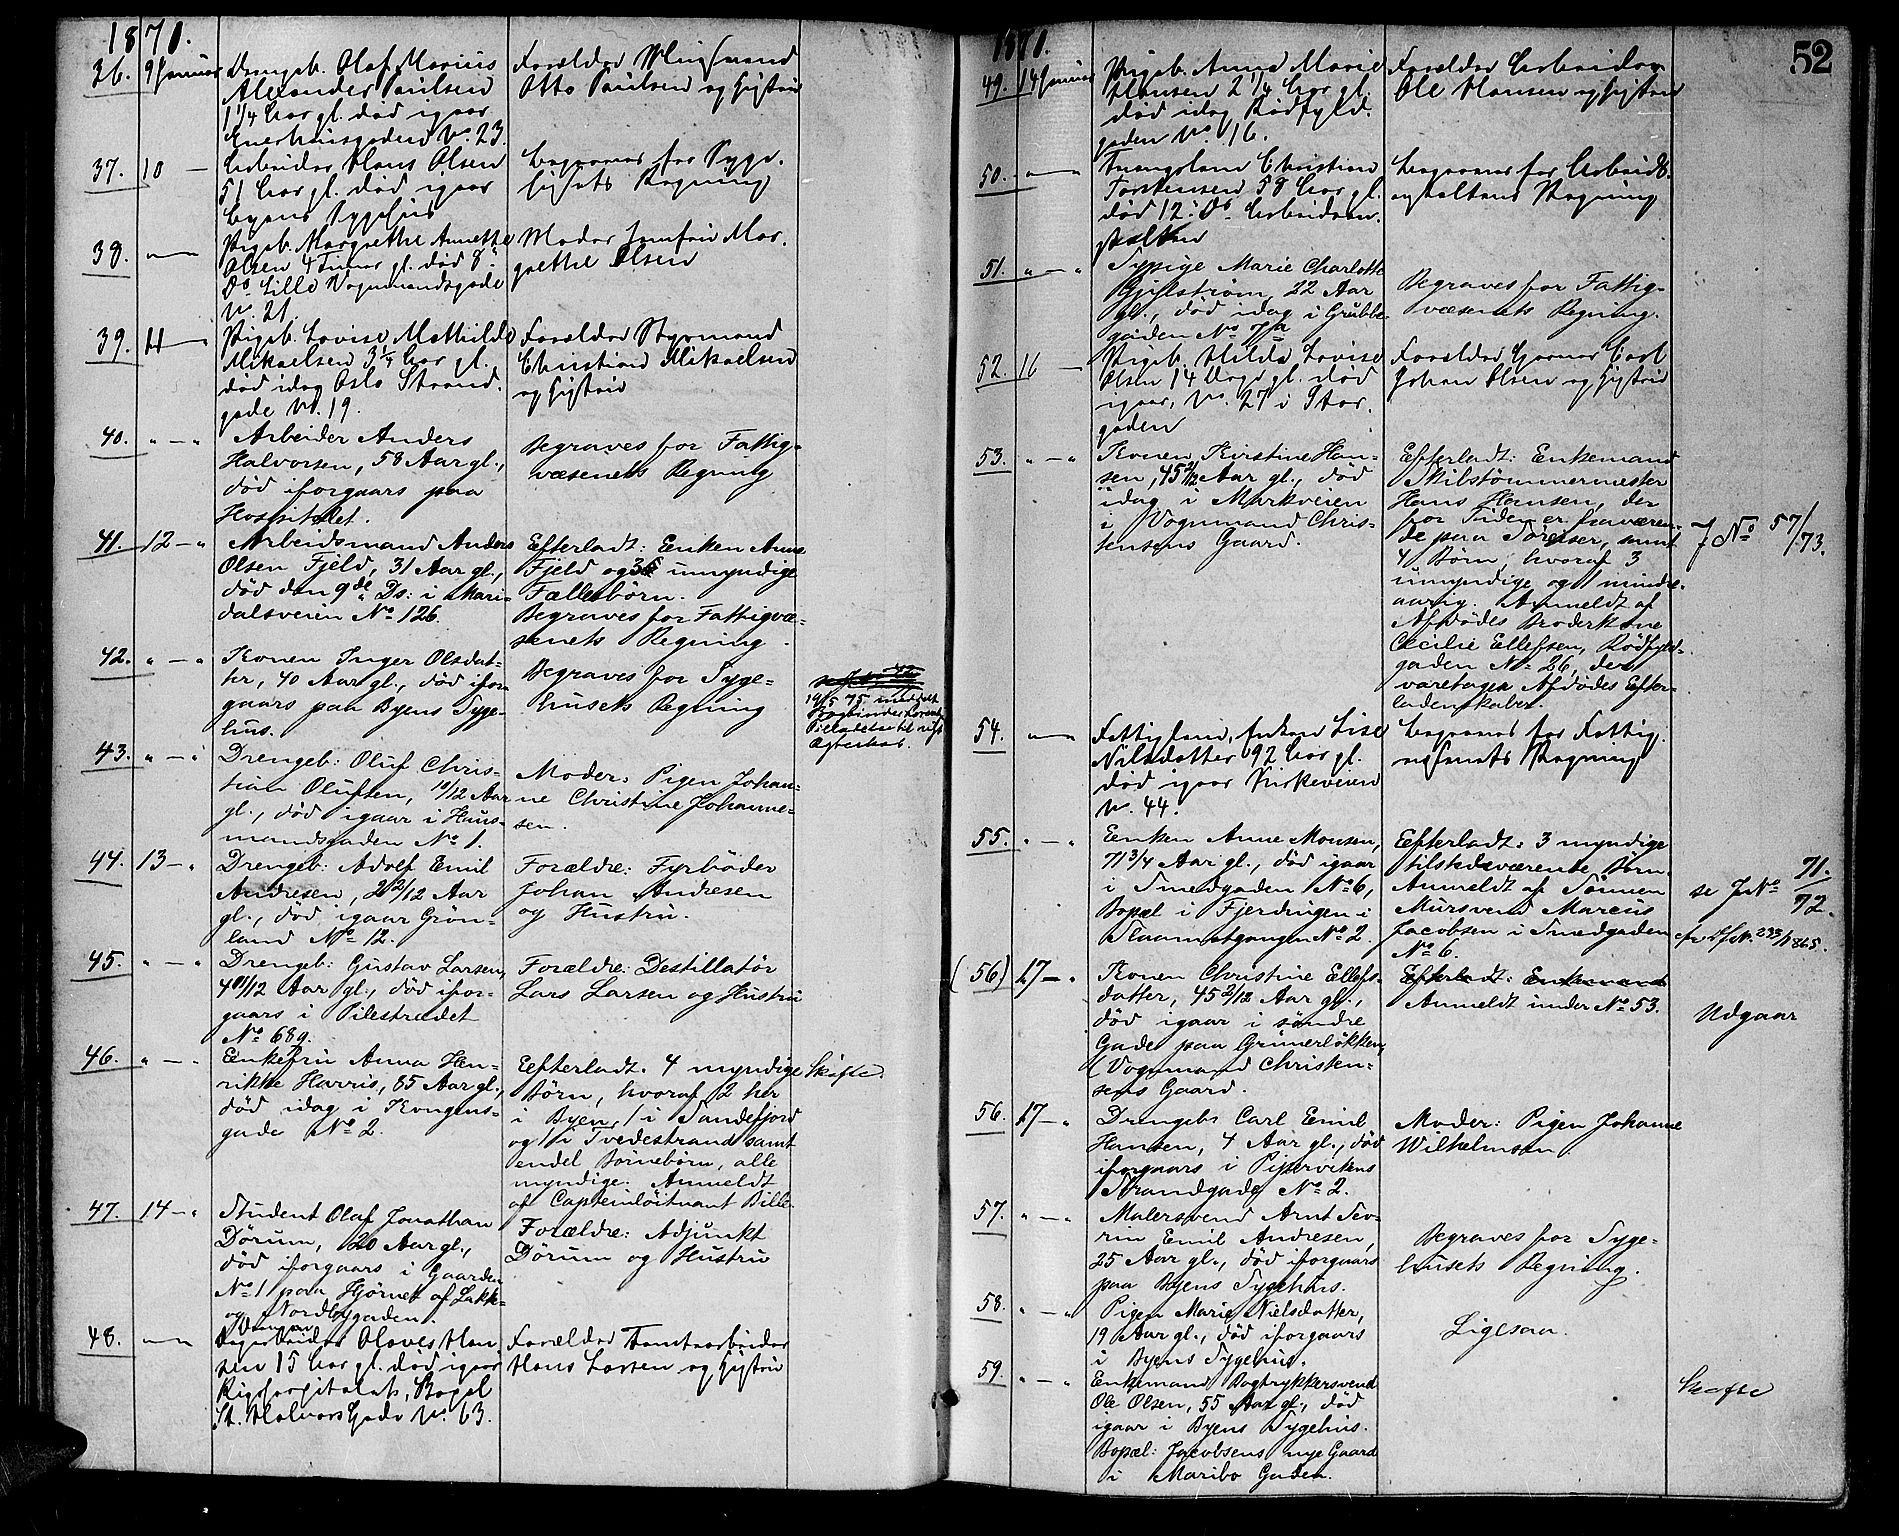 1871.
36. 9 Januar Drengeb. Olaf Marius
Alexander Paulsen
1 1/4 Aar gl. død igaar
Enerhaugsgaden No. 23.
Forældre
Otto Paulsen og Hustru
37. 10 — Arbeider Hans Olsen
51 Aar gl. død igaar
Byens Sygehus
Begraves for Syge-
husets Regning
38. — Pigeb. Margrethe Annette
Olsen 4 Timer gl. død 8
Ds. Lille Vognmandsgade
No. 21.
Moder Jomfru Mar-
grethe Olsen
39. 11 — Pigeb. Lovise Mathilde
Mikaelsen 3 1/4 Aar gl.
død idag Oslo Strand-
gade No. 19.
Forældre Styrmand
Christian Mikaelsen
og Hustru
40. " — " Arbeider Anders
Halvorsen, 58 Aar gl.,
død iforgaars paa
Hospitalet.
Begraves for Fattig-
væsenets Regning
41. 12 — " Arbeidsmand Anders
Olsen Fjeld, 31 Aar gl.,
død den 9de Ds. i Mari-
dalsveien No 126.
Efterladt: Enken Anne
Fjeld og 3 umyndige
Fællesbørn.
Begraves for Fattigvæ-
senets Regning.
42. " — " Konen Inger Olsdat-
ter, 40 Aar gl., død ifor-
gaars paa Byens Syge-
hus.
Begraves for Syge-
husets Regning
19/5 75 meddelt
43. " — " Drengeb: Oluf Chris-
tian Olufsen, 10/12 Aar
gl., død igaar i Haus-
mandsgaden No 1.
Moder: Pigen Johan-
ne Christine Johanne-
sen.
44. 13 — " Drengeb: Adolf Emil
Andresen, 2 2/12 Aar
gl., død igaar Grøn-
land No 12.
Forældre: Fyrbøder
Johan Andresen
og Hustru.
45. " — " Drengeb: Gustav Larsen,
4 9/12 Aar gl., død ifor-
gaars i Pilestrædet
No 689.
Forældre: Destillatør
Lars Larsen og Hustru
46. " — " Enkefru Anna Hen-
rikke Harris, 85 Aar gl.,
død idag i Kongens-
gade No 2.
Efterladt. 4 myndige
Børn, hvoraf 2 her
i Byen, 1 i Sandefjord
og 1 i Tvedestrand samt
endel Børnebørn, alle
myndige. Anmeldt
af Capteinløitnant Bille.
Skifte.
47. 14 — " Student Olaf Jonathan
Dørum, 20 Aar gl.,
død iforgaars i Gaarden
No 1 paa Hjørnet af Lakke-
og Nordbygaden.
Forældre: Adjunkt
Dørum og Hustru
48. — Olaves Han-
sen 15 Aar gl. død igaar
Rigshospitalet, Bopæl
St. Halvors Gade No. 63.
Forældre Tomtearbeider
Hans Larsen og Hustru
52
1871.
49. 14 Januar Pigeb. Anna Marie
Hansen 2 1/4 Aar gl.
død idag Rødfyld-
gaden No. 16.
Forældre Arbeider
Ole Hansen og Hustru
50. — Tvangslem Christian
Torstensen 58 Aar gl.
død 12. Ds. Arbeidsan-
stalten
Begraves for Arbeids-
anstaltens Regning
51. " — " Sypige Marie Charlotte
22 Aar
gl., død idag i Grubbe-
gaden No 7a
Begraves for Fattig-
væsenets Regning.
52. 16 — Pigeb. Hilda Lovise
Olsen 14 Dage gl. død
igaar, No. 27 i Stor-
gaden
Forældre Carl
Johan Olsen og Hustru
53. " — " Konen Kirstine Han-
sen, 45 2/12 Aar gl., død
idag i Markveien
i Vognmand Chris-
tensens Gaard.
Efterladt: Enkemand
Skibstømmermester
Hans Hansen, der
for Tiden er fraværen-
de paa Søreiser, samt
4 Børn, hvoraf 3
umyndige og 1 mindre-
aarig. Anmeldt af
Afdødes Broderkone
Cecilie Ellefsen, Rødfyld-
gaden No 26, der
varetager Afdødes Efter-
ladenskaber.
J No 57/73.
54. — Fattiglem, Enken Lise
Nilsdatter 92 Aar gl.
død igaar Kirkeveien
No. 44.
Begraves for Fattig-
væsenets Regning
55. " — " Enken Anne Monsen,
71 3/4 Aar gl., død igaar
i Smedgaden No 6,
Bopæl i Fjerdingen i
No 2.
Efterladt: 3 myndige
tilstedeværende Børn.
Anmeldt af Sønnen
Mursvend Marcus
Jacobsen i Smedgaden
No 6.
se J No 71./72.
cfr J No. 233/1865.
(56) 17 — " Konen Christine Ellefs-
datter, 45 2/12 Aar gl.,
død igaar i søndre
Gade paa Grünerløkken,
Vognmand Christen-
sens Gaard.
Efterladt: Enkemand
Anmeldt under No 53.
Udgaar
56. 17 — " Drengeb. Carl Emil
Hansen, 4 Aar gl., død
iforgaars i Pipervikens
Strandgade No 2.
Moder: Pigen Johanne
Wilhelmsen.
57. " — " Malersvend Arnt Sev-
rin Emil Andresen,
25 Aar gl., død iforgaars
paa Byens Sygehus.
Begraves for Syge-
husets Regning.
58. " — " Pigen Marie Nielsdatter,
19 Aar gl., død iforgaars
i Byens Sygehus.
Ligesaa.
59. " — " Enkemand, Bogtrykkersvend
Ole Olsen, 55 Aar gl., død
igaar i Byens Sygehus.
Bopæl: Jacobsens nye Gaard
i Maribo Gaden.
Skifte